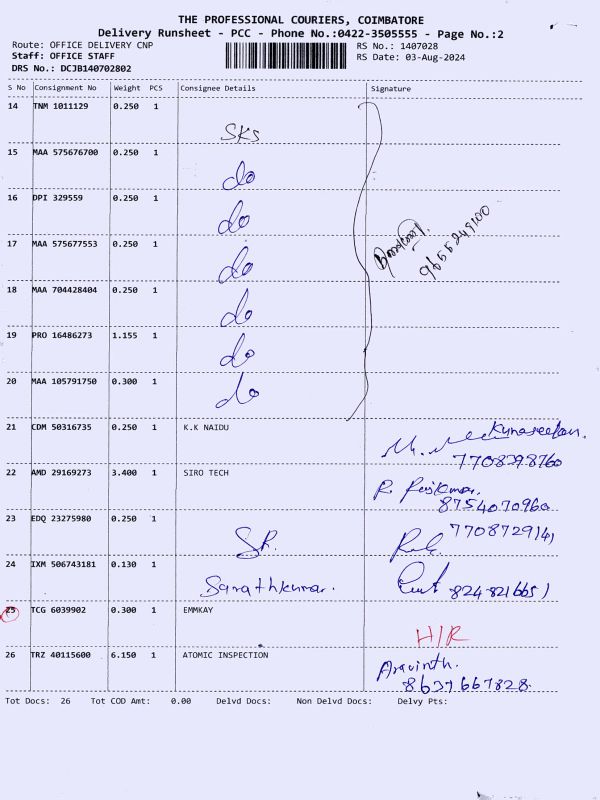 THE PROFESSIONAL COURIERS, COIMBATORE
Delivery Runsheet - PCC - Phone No.:0422-3505555 - Page No.:2
Route: OFFICE DELIVERY CNP RS No.: 1407028
Staff: OFFICE STAFF RS Date: 03-Aug-2024
DRS No.: DCJB140702802
S No Consignment No Weight PCS Consignee Details Signature
14 TNM 1011129 0.250 1
SKS
15 MAA 575676700 0.250 1
do
16 DPI 329559 0.250 1
do
9655249100
17 MAA 575677553 0.250 1
do
18 MAA 704428404 0.250 1
do
19 PRO 16486273 1.155 1
do
20 MAA 105791750 0.300 1
do
21 CDM 50316735 0.250 1 K.K NAIDU
7708398760
22 AMD 29169273 3.400 1 SIRO TECH
8754070960
23 EDQ 23275980 0.250 1
SR.
24 IXM 506743181 0.130 1
Sarathkumar.
25 TCG 6039902 0.300 1 EMMKAY
H/R
26 TRZ 40115600 6.150 1 ATOMIC INSPECTION
Aravinth.
8637667828
Tot Docs: 26 Tot COD Amt: 0.00 Delvd Docs: Non Delvd Docs: Delvy Pts: